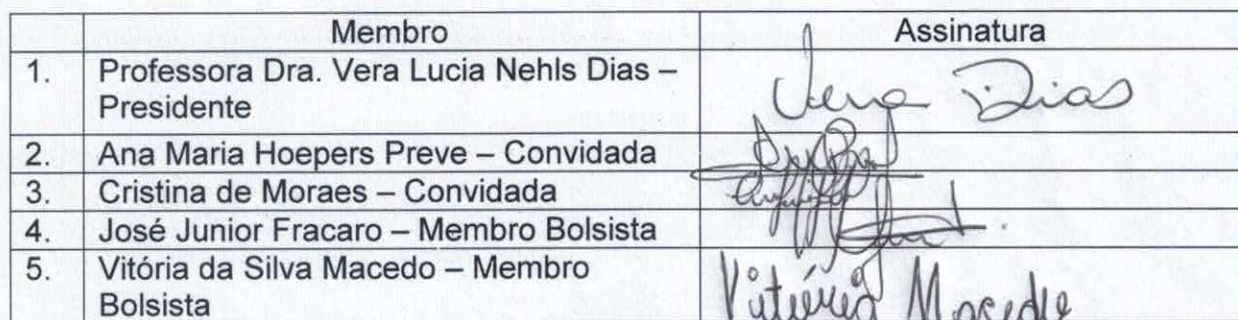 Membro Assinatura
1. Professora Dra. Vera Lucia Nehls Dias – Vera Dias
Presidente
2. Ana Maria Hoepers Preve – Convidada
3. Cristina de Moraes – Convidada
4. José Junior Fracaro – Membro Bolsista
5. Vitória da Silva Macedo – Membro Vitória Macedo
Bolsista